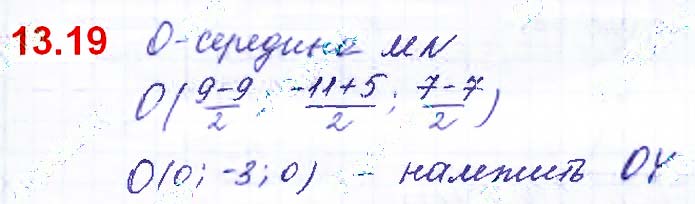 13.19 O - середина MN
O(9-9/2; -11+5/2; 7-7/2)
O(0; -3; 0) - належить OY